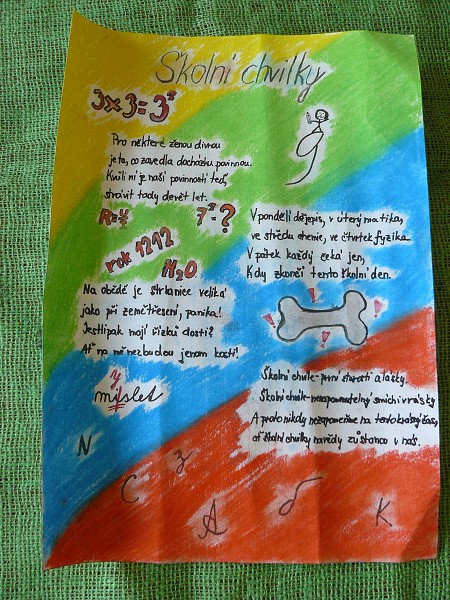 Školní chvilky
3x3=3²
Pro některé ženou divnou
je ta, co zavedla docházku povinnou.
Kvůli ní je naší povinností teď,
strávit tady devět let.
7²=?
rok 1212
H₂O
V pondělí dějepis, v úterý matika,
ve středu chemie, ve čtvrtek fyzika
V pátek každý čeká jen,
Kdy skončí tento školní den.
Na obědě je strkanice veliká
jako při zemětřesení, panika!
Jestlipak mají řízků dosti?
Ať na mě nezbudou jenom kosti!
! ! !
y
mislet
Školní chvíle-první starosti a lásky.
Školní chvíle-nezapomenutelný smích i vrásky
A proto nikdy nezapomeňme na tento krásný čas,
ať školní chvilky navždy zůstanou v nás.
N
C
z
A
K